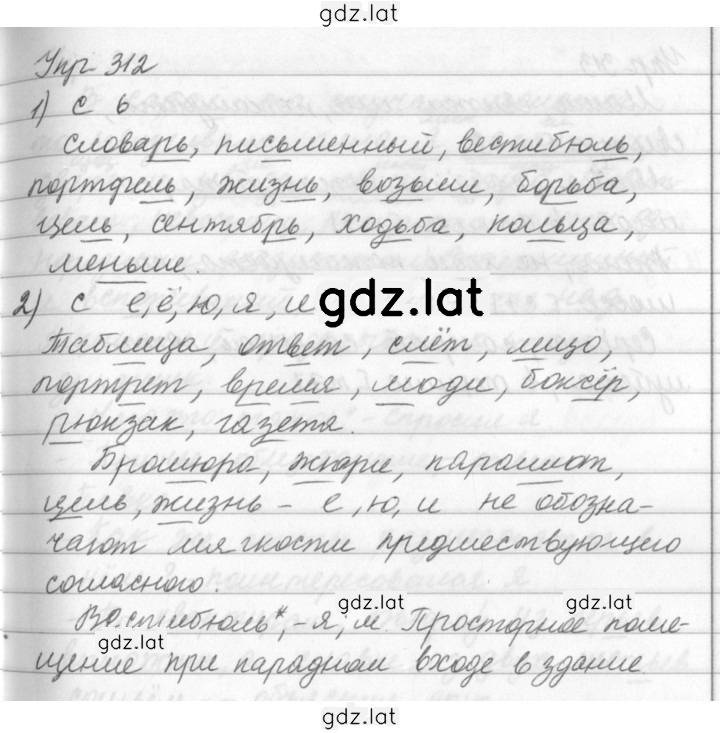 gdz.lat
Упр 312
1) с ь
словарь, письменный, вестибюль,
портфель, жизнь, возьми, борьба,
цель, сентябрь, ходьба, польща,
меньше.
2) с е, ё, ю, я, и gdz.lat
Таблица, ответ, слёт, лицо,
портрет, время, люди, боксёр,
рюкзак, газета.
Брошюра, жюри, парашют,
цель, жизнь - е, ю, и не обозна-
чают мягкости предшествующего
согласного.
gdz.lat gdz.lat
Вестибюль*, -я; м. Просторное поме-
gdz.lat
щение при парадном входе в здание
gdz.lat